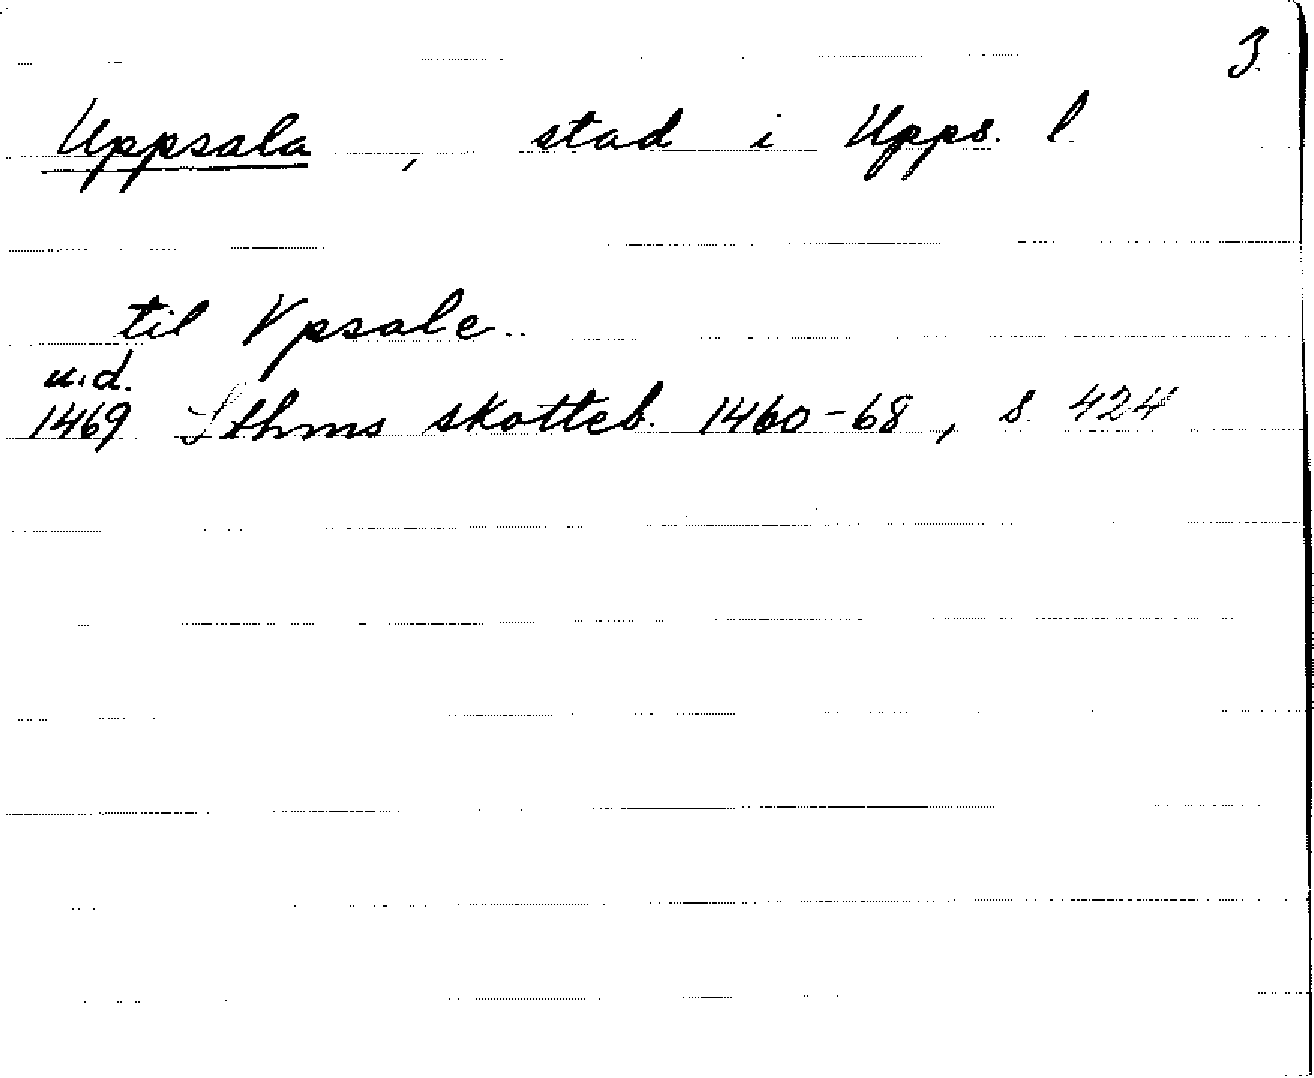 3
Uppsala, stad i Upps. l
til Vpsale..
u.d.
1469 Sthms skotteb. 1460-68, s 424